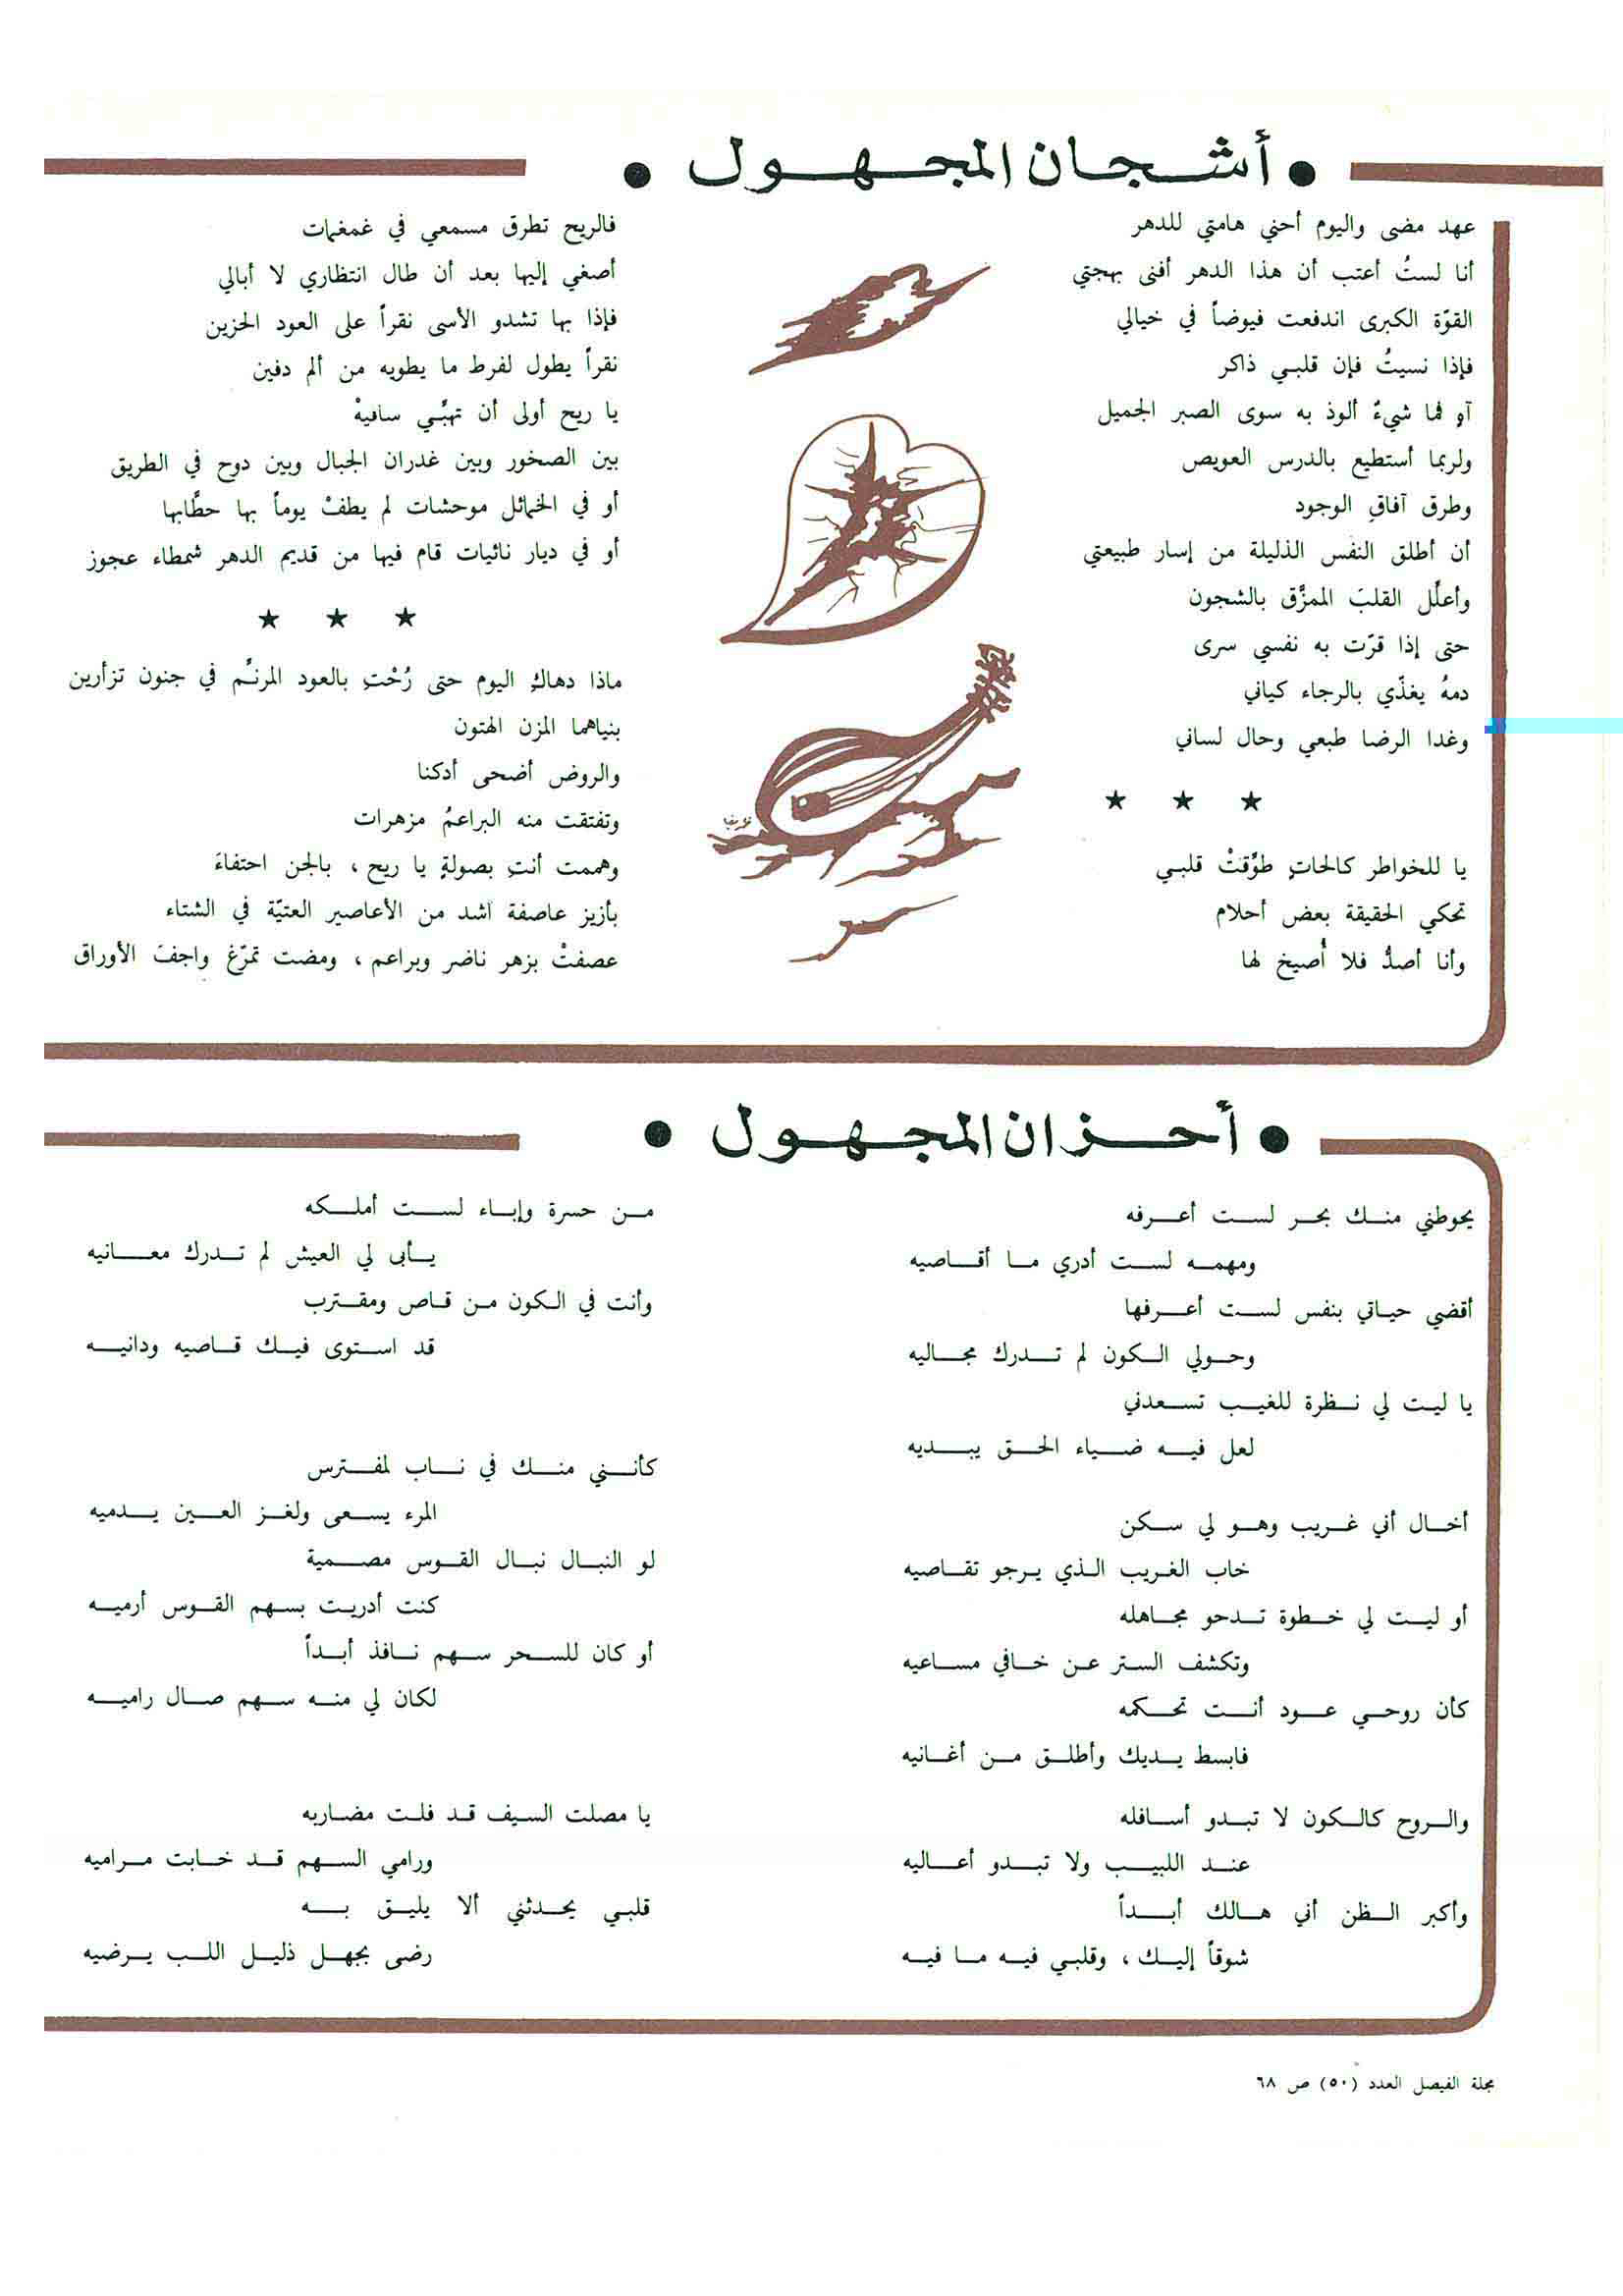 ● أشجان المجهول ●
عهد مضى واليوم أحني هامتي للدهر
أنا لستُ أعتب أن هذا الدهر أفنى بهجتي
القوّة الكبرى اندفعت فيوضاً في خيالي
فإذا نسيتُ فإن قلبي ذاكر
آهِ فما شيءٌ ألوذ به سوى الصبر الجميل
ولربما أستطيع بالدرس العويص
وطرق آفاقِ الوجود
أن أطلق النفس الذليلة من إسار طبيعتي
وأعلّل القلبَ الممزَّق بالشجون
حتى إذا قرّت به نفسي سرى
دمهُ يغذّي بالرجاء كياني
وغدا الرضا طبعي وحال لساني
★ ★ ★
يا للخواطر كالحاتٍ طوَّقتْ قلبي
تحكي الحقيقة بعض أحلام
وأنا أصدُّ فلا أُصيخ لها
فالريح تطرق مسمعي في غمغمات
أصغي إليها بعد أن طال انتظاري لا أبالي
فإذا بها تشدو الأسى نقراً على العود الحزين
نقراً يطول لفرط ما يطويه من ألم دفين
يا ريح أولى أن تهبُّي سافيهْ
بين الصخور وبين غدران الجبال وبين دوح في الطريق
أو في الخمائل موحشات لم يطفْ يوماً بها حطَّابها
أو في ديار نائيات قام فيها من قديم الدهر شمطاء عجوز
★ ★ ★
ماذا دهاكِ اليوم حتى رُحْتِ بالعود المرنَّم في جنون تزأرين
بنياهما المزن الهتون
والروض أضحى أدكنا
وتفتقت منه البراعمُ مزهرات
وهممت أنتِ بصولةٍ يا ريح ، بالجن احتفاءَ
بأزيز عاصفة أشد من الأعاصير العتيّة في الشتاء
عصفتْ بزهر ناضر وبراعم ، ومضت تمرّغ واجفَ الأوراق
● أحزان المجهول ●
يحوطني منك بحر لست أعرفه
ومهمه لست أدري ما أقاصيه
أقضي حياتي بنفس لست أعرفها
وحولي الكون لم تدرك مجاليه
يا ليت لي نظرة للغيب تسعدني
لعل فيه ضياء الحق يبديه
أخال أني غريب وهو لي سكن
خاب الغريب الذي يرجو تقاصيه
أو ليت لي خطوة تدحو مجاهله
وتكشف الستر عن خافي مساعيه
كأن روحي عود أنت تحكمه
فابسط يديك وأطلق من أغانيه
والروح كالكون لا تبدو أسافله
عند اللبيب ولا تبدو أعاليه
وأكبر الظن أني هالك أبداً
شوقاً إليك ، وقلبي فيه ما فيه
من حسرة وإباء لست أملكه
يأبى لي العيش لم تدرك معانيه
وأنت في الكون من قاص ومقترب
قد استوى فيك قاصيه ودانيه
كأنني منك في ناب لمفترس
المرء يسعى ولغز العين يدميه
لو النبال نبال القوس مصمية
كنت أدريت بسهم القوس أرميه
أو كان للسحر سهم نافذ أبداً
لكان لي منه سهم صال راميه
يا مصلت السيف قد فلت مضاربه
ورامي السهم قد خابت مراميه
قلبي يحدثني ألا يليق به
رضى بجهل ذليل اللب يرضيه
مجلة الفيصل العدد (٥٠) ص ٦٨